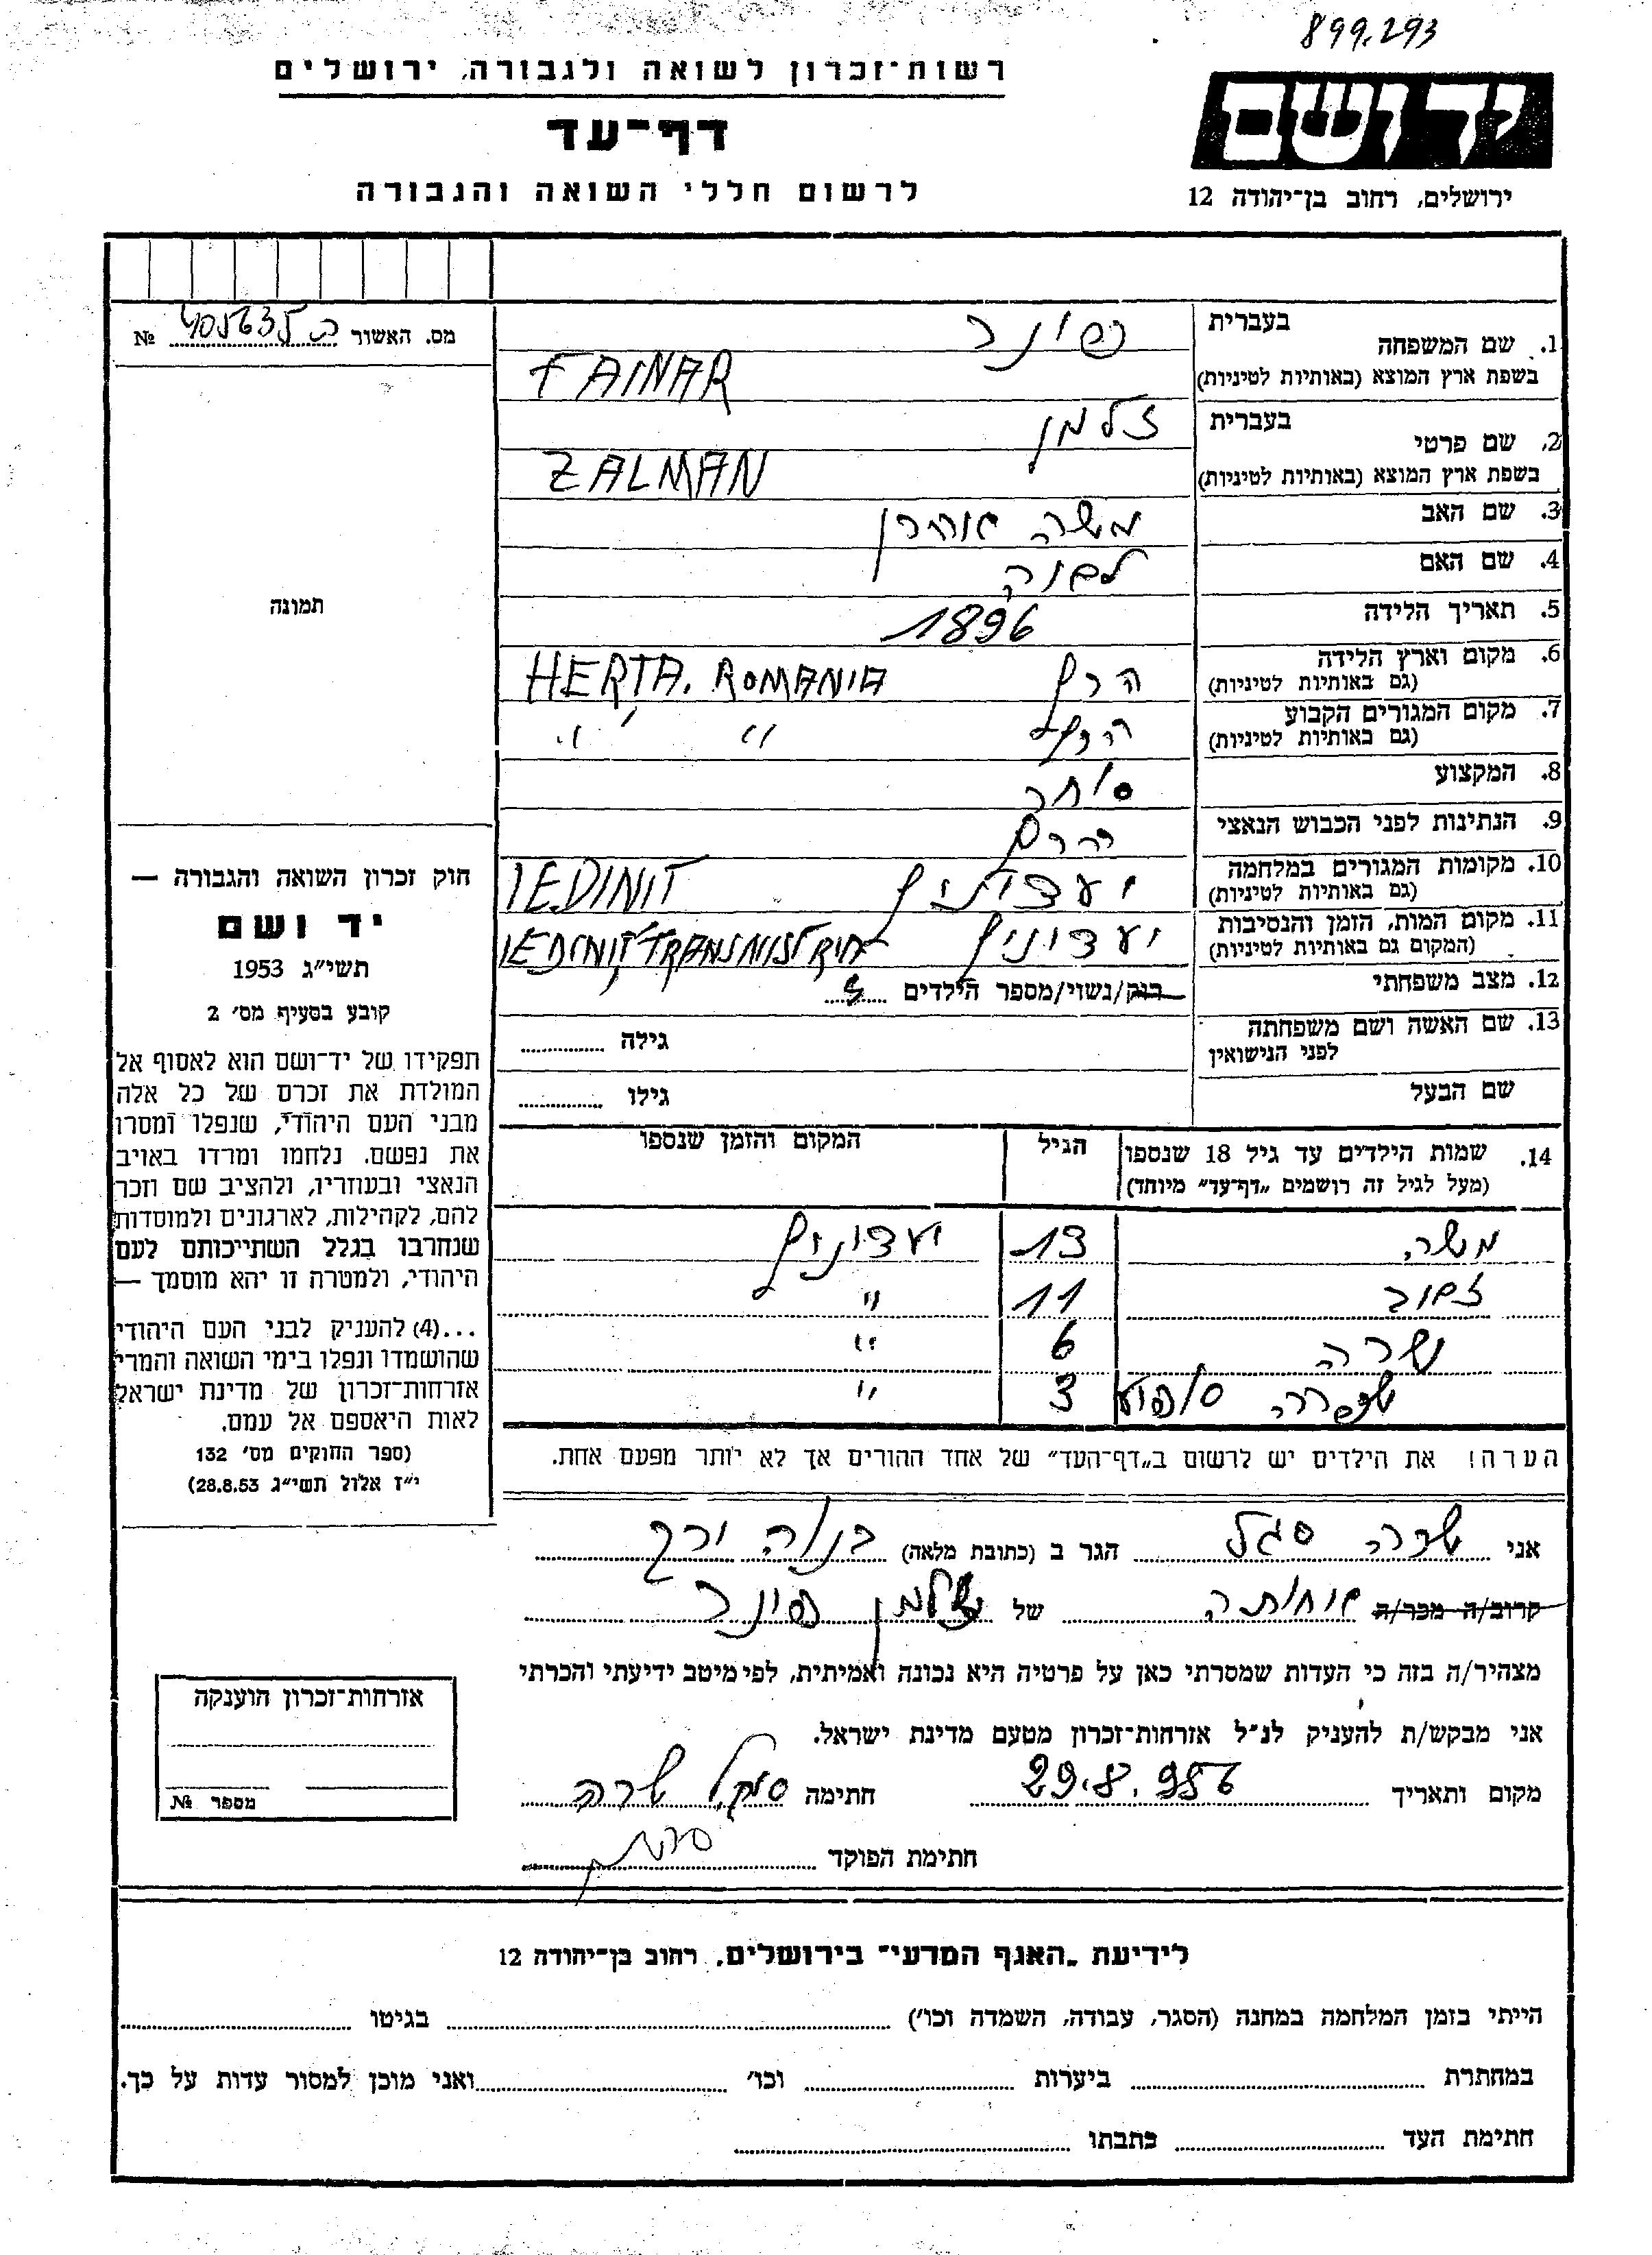 899.293
רשות־זכרון לשואה ולגבורה, ירושלים
יד ושם
דף־עד
לרשום חללי השואה והגבורה
ירושלים, רחוב בן־יהודה 12
מס. האשור № 405635
1. שם המשפחה בעברית פיינר
בשפת ארץ המוצא (באותיות לטיניות) FAINAR
2. שם פרטי בעברית זלמן
בשפת ארץ המוצא (באותיות לטיניות) ZALMAN
3. שם האב משה אהרן
4. שם האם
5. תאריך הלידה 1896
6. מקום וארץ הלידה (גם באותיות לטיניות) HERTA. ROMANIA
7. מקום המגורים הקבוע (גם באותיות לטיניות) " "
8. המקצוע סוחר
9. הנתינות לפני הכבוש הנאצי
10. מקומות המגורים במלחמה (גם באותיות לטיניות) יעדיניץ IEDINIT
11. מקום המות, הזמן והנסיבות (המקום גם באותיות לטיניות) יעדיניץ IEDINIT TRANSNISTRIA
12. מצב משפחתי רווק/נשוי/מספר הילדים
13. שם האשה ושם משפחתה לפני הנישואין גילה
שם הבעל גילו
תמונה
14. שמות הילדים עד גיל 18 שנספו הגיל המקום והזמן שנספו
(מעל לגיל זה רושמים „דף־עד" מיוחד)
משה 13 יעדיניץ
11 "
שרה 6 "
3 "
הערה! את הילדים יש לרשום ב„דף־העד" של אחד ההורים אך לא יותר מפעם אחת.
חוק זכרון השואה והגבורה —
יד ושם
תשי"ג 1953
קובע בסעיף מס׳ 2
תפקידו של יד־ושם הוא לאסוף אל
המולדת את זכרם של כל אלה
מבני העם היהודי, שנפלו ומסרו
את נפשם. נלחמו ומרדו באויב
הנאצי ובעוזריו, ולהציב שם וזכר
להם, לקהילות, לארגונים ולמוסדות
שנחרבו בגלל השתייכותם לעם
היהודי, ולמטרה זו יהא מוסמך —
...(4) להעניק לבני העם היהודי
שהושמדו ונפלו בימי השואה והמרי
אזרחות־זכרון של מדינת ישראל
לאות היאספם אל עמם.
(ספר החוקים מס׳ 132
י"ז אלול תשי"ג 28.8.53)
אני שרה סגל הגר ב (כתובת מלאה)
קרוב/ה מכר/ה אחותה של זלמן פיינר
מצהיר/ה בזה כי העדות שמסרתי כאן על פרטיה היא נכונה ואמיתית, לפי מיטב ידיעתי והכרתי
אני מבקש/ת להעניק לנ"ל אזרחות־זכרון מטעם מדינת ישראל.
מקום ותאריך 29.8.956 חתימה סגל שרה
חתימת הפוקד
אזרחות־זכרון הוענקה
מספר №
לידיעת „האגף המדעי" בירושלים, רחוב בן־יהודה 12
הייתי בזמן המלחמה במחנה (הסגר, עבודה, השמדה וכו׳) בגיטו
במחתרת ביערות וכו׳ ואני מוכן למסור עדות על כך.
חתימת העד כתבתו